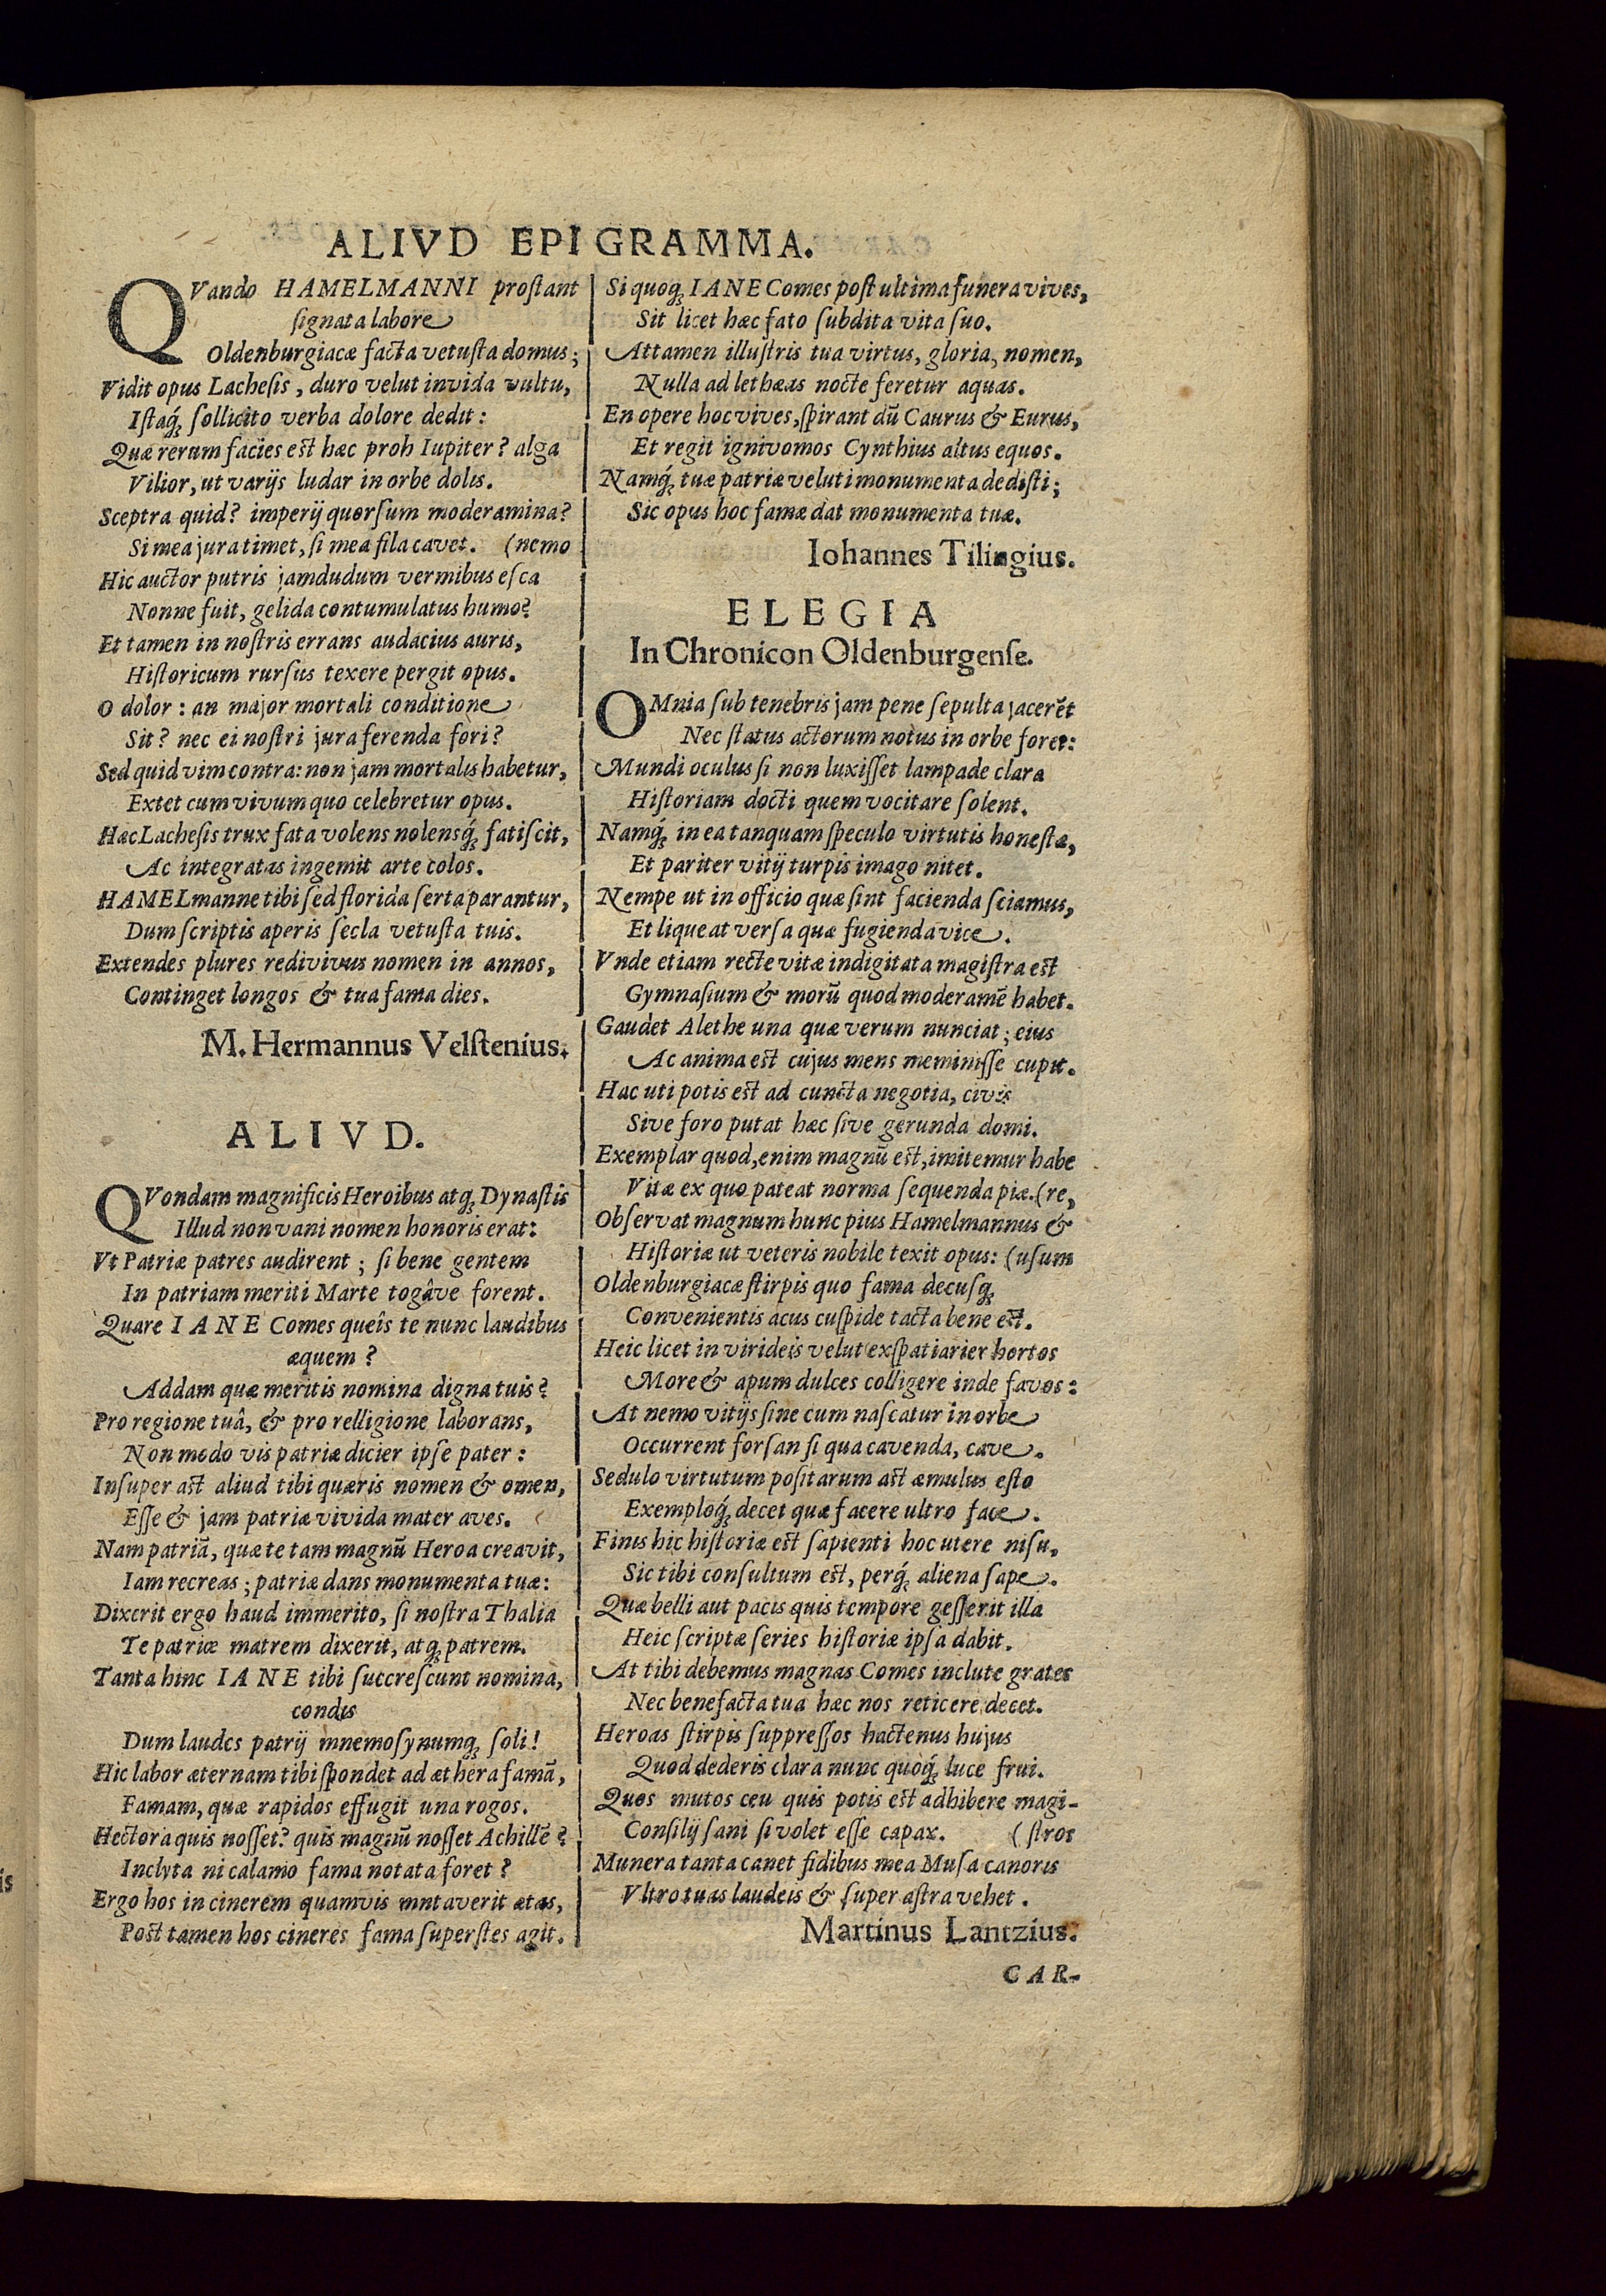 ALIVD EPIGRAMMA.
QVando HAMELMANNI proſtant
ſignata labore
Oldenburgiacæ facta vetuſta domus;
Vidit opus Lacheſis, duro velut invida vultu,
Iſtaq́ꝫ ſollicito verba dolore dedit:
Quæ rerum facies est hæc proh Iupiter? alga
Vilior, ut varijs ludar in orbe dolis.
Sceptra quid? imperij quorſum moderamina?
Si mea jura timet, ſi mea fila cavet. (nemo
Hic auctor putris jamdudum vermibus eſca
Nonne fuit, gelida contumulatus humo?
Et tamen in noſtris errans audacius auris,
Hiſtoricum rurſus texere pergit opus.
O dolor: an major mortali conditione
Sit? nec ei noſtri jura ferenda fori?
Sed quid vim contra: non jam mortalis habetur,
Extet cum vivum quo celebretur opus.
Hæc Lacheſis trux fata volens nolensq́ꝫ fatiſcit,
Ac integratas ingemit arte colos.
HAMELmanne tibi ſed florida ſerta parantur,
Dum ſcriptis aperis ſecla vetuſta tuis.
Extendes plures redivivus nomen in annos,
Continget longos & tua fama dies.
M. Hermannus Velſtenius.
ALIVD.
QVondam magnificis Heroibus atqꝫ Dynaſtis
Illud non vani nomen honoris erat:
Vt Patriæ patres audirent; ſi bene gentem
In patriam meriti Marte togâve forent.
Quare IANE Comes queîs te nunc laudibus
æquem?
Addam quæ meritis nomina digna tuis?
Pro regione tuâ, & pro relligione laborans,
Non modo vis patriæ dicier ipſe pater:
Inſuper ast aliud tibi quæris nomen & omen,
Eſſe & jam patriæ vivida mater aves.
Nam patriā, quæ te tam magnū Heroa creavit,
Iam recreas; patriæ dans monumenta tuæ:
Dixerit ergo haud immerito, ſi noſtra Thalia
Te patriæ matrem dixerit, atqꝫ patrem.
Tanta hinc IANE tibi ſuccreſcunt nomina,
condis
Dum laudes patrij mnemoſynumqꝫ ſoli!
Hic labor æternam tibi ſpondet ad æthera famā,
Famam, quæ rapidos effugit una rogos.
Hectora quis noſſet? quis magnū noſſet Achillē?
Inclyta ni calamo fama notata foret?
Ergo hos in cinerem quamvis mutaverit ætas,
Post tamen hos cineres fama ſuperſtes agit.
Si quoqꝫ IANE Comes poſt ultima funera vives,
Sit licet hæc fato ſubdita vita ſuo.
Attamen illuſtris tua virtus, gloria, nomen,
Nulla ad lethæas nocte feretur aquas.
En opere hoc vives, ſpirant dū Caurus & Eurus,
Et regit ignivomos Cynthius altus equos.
Namq́ꝫ tuæ patriæ veluti monumenta dediſti;
Sic opus hoc famæ dat monumenta tuæ.
Iohannes Tilingius.
ELEGIA
In Chronicon Oldenburgenſe.
OMnia ſub tenebris jam pene ſepulta jacerēt
Nec ſtatus actorum notus in orbe foret:
Mundi oculus ſi non luxiſſet lampade clara
Hiſtoriam docti quem vocitare ſolent.
Namq́ꝫ in ea tanquam ſpeculo virtutis honeſtæ,
Et pariter vitij turpis imago nitet.
Nempe ut in officio quæ ſint facienda ſciamus,
Et liqueat verſa quæ fugienda vice.
Vnde etiam recte vitæ indigitata magiſtra est
Gymnaſium & morū quod moderamē habet.
Gaudet Alethe una quæ verum nunciat; eius
Ac anima est cujus mens meminiſſe cupit.
Hac uti potis est ad cuncta negotia, civis
Sive foro putat hæc ſive gerunda domi.
Exemplar quod, enim magnū est, imitemur habe
Vitæ ex quo pateat norma ſequenda piæ. (re,
Obſervat magnum hunc pius Hamelmannus &
Hiſtoriæ ut veteris nobile texit opus: (uſum
Oldenburgiacæ ſtirpis quo fama decuſqꝫ
Convenientis acus cuſpide tacta bene est.
Heic licet in virideis velut exſpatiarier hortos
More & apum dulces colligere inde favos:
At nemo vitijs ſine cum naſcatur in orbe
Occurrent forſan ſi qua cavenda, cave.
Sedulo virtutum poſitarum ast æmulus eſto
Exemploq́ꝫ decet quæ facere ultro face.
Finis hic hiſtoriæ est ſapienti hoc utere niſu,
Sic tibi conſultum est, perq́ꝫ aliena ſape.
Quæ belli aut pacis quis tempore geſſerit illa
Heic ſcriptæ ſeries hiſtoriæ ipſa dabit.
At tibi debemus magnas Comes inclute grates
Nec benefacta tua hæc nos reticere decet.
Heroas ſtirpis ſuppreſſos hactenus hujus
Quod dederis clara nunc quoq́ꝫ luce frui.
Quos mutos ceu quis potis est adhibere magi-
Conſilij ſani ſi volet eſſe capax. (ſtros
Munera tanta canet fidibus mea Muſa canoris
Vltro tuas laudeis & ſuper aſtra vehet.
Martinus Lantzius.
CAR-